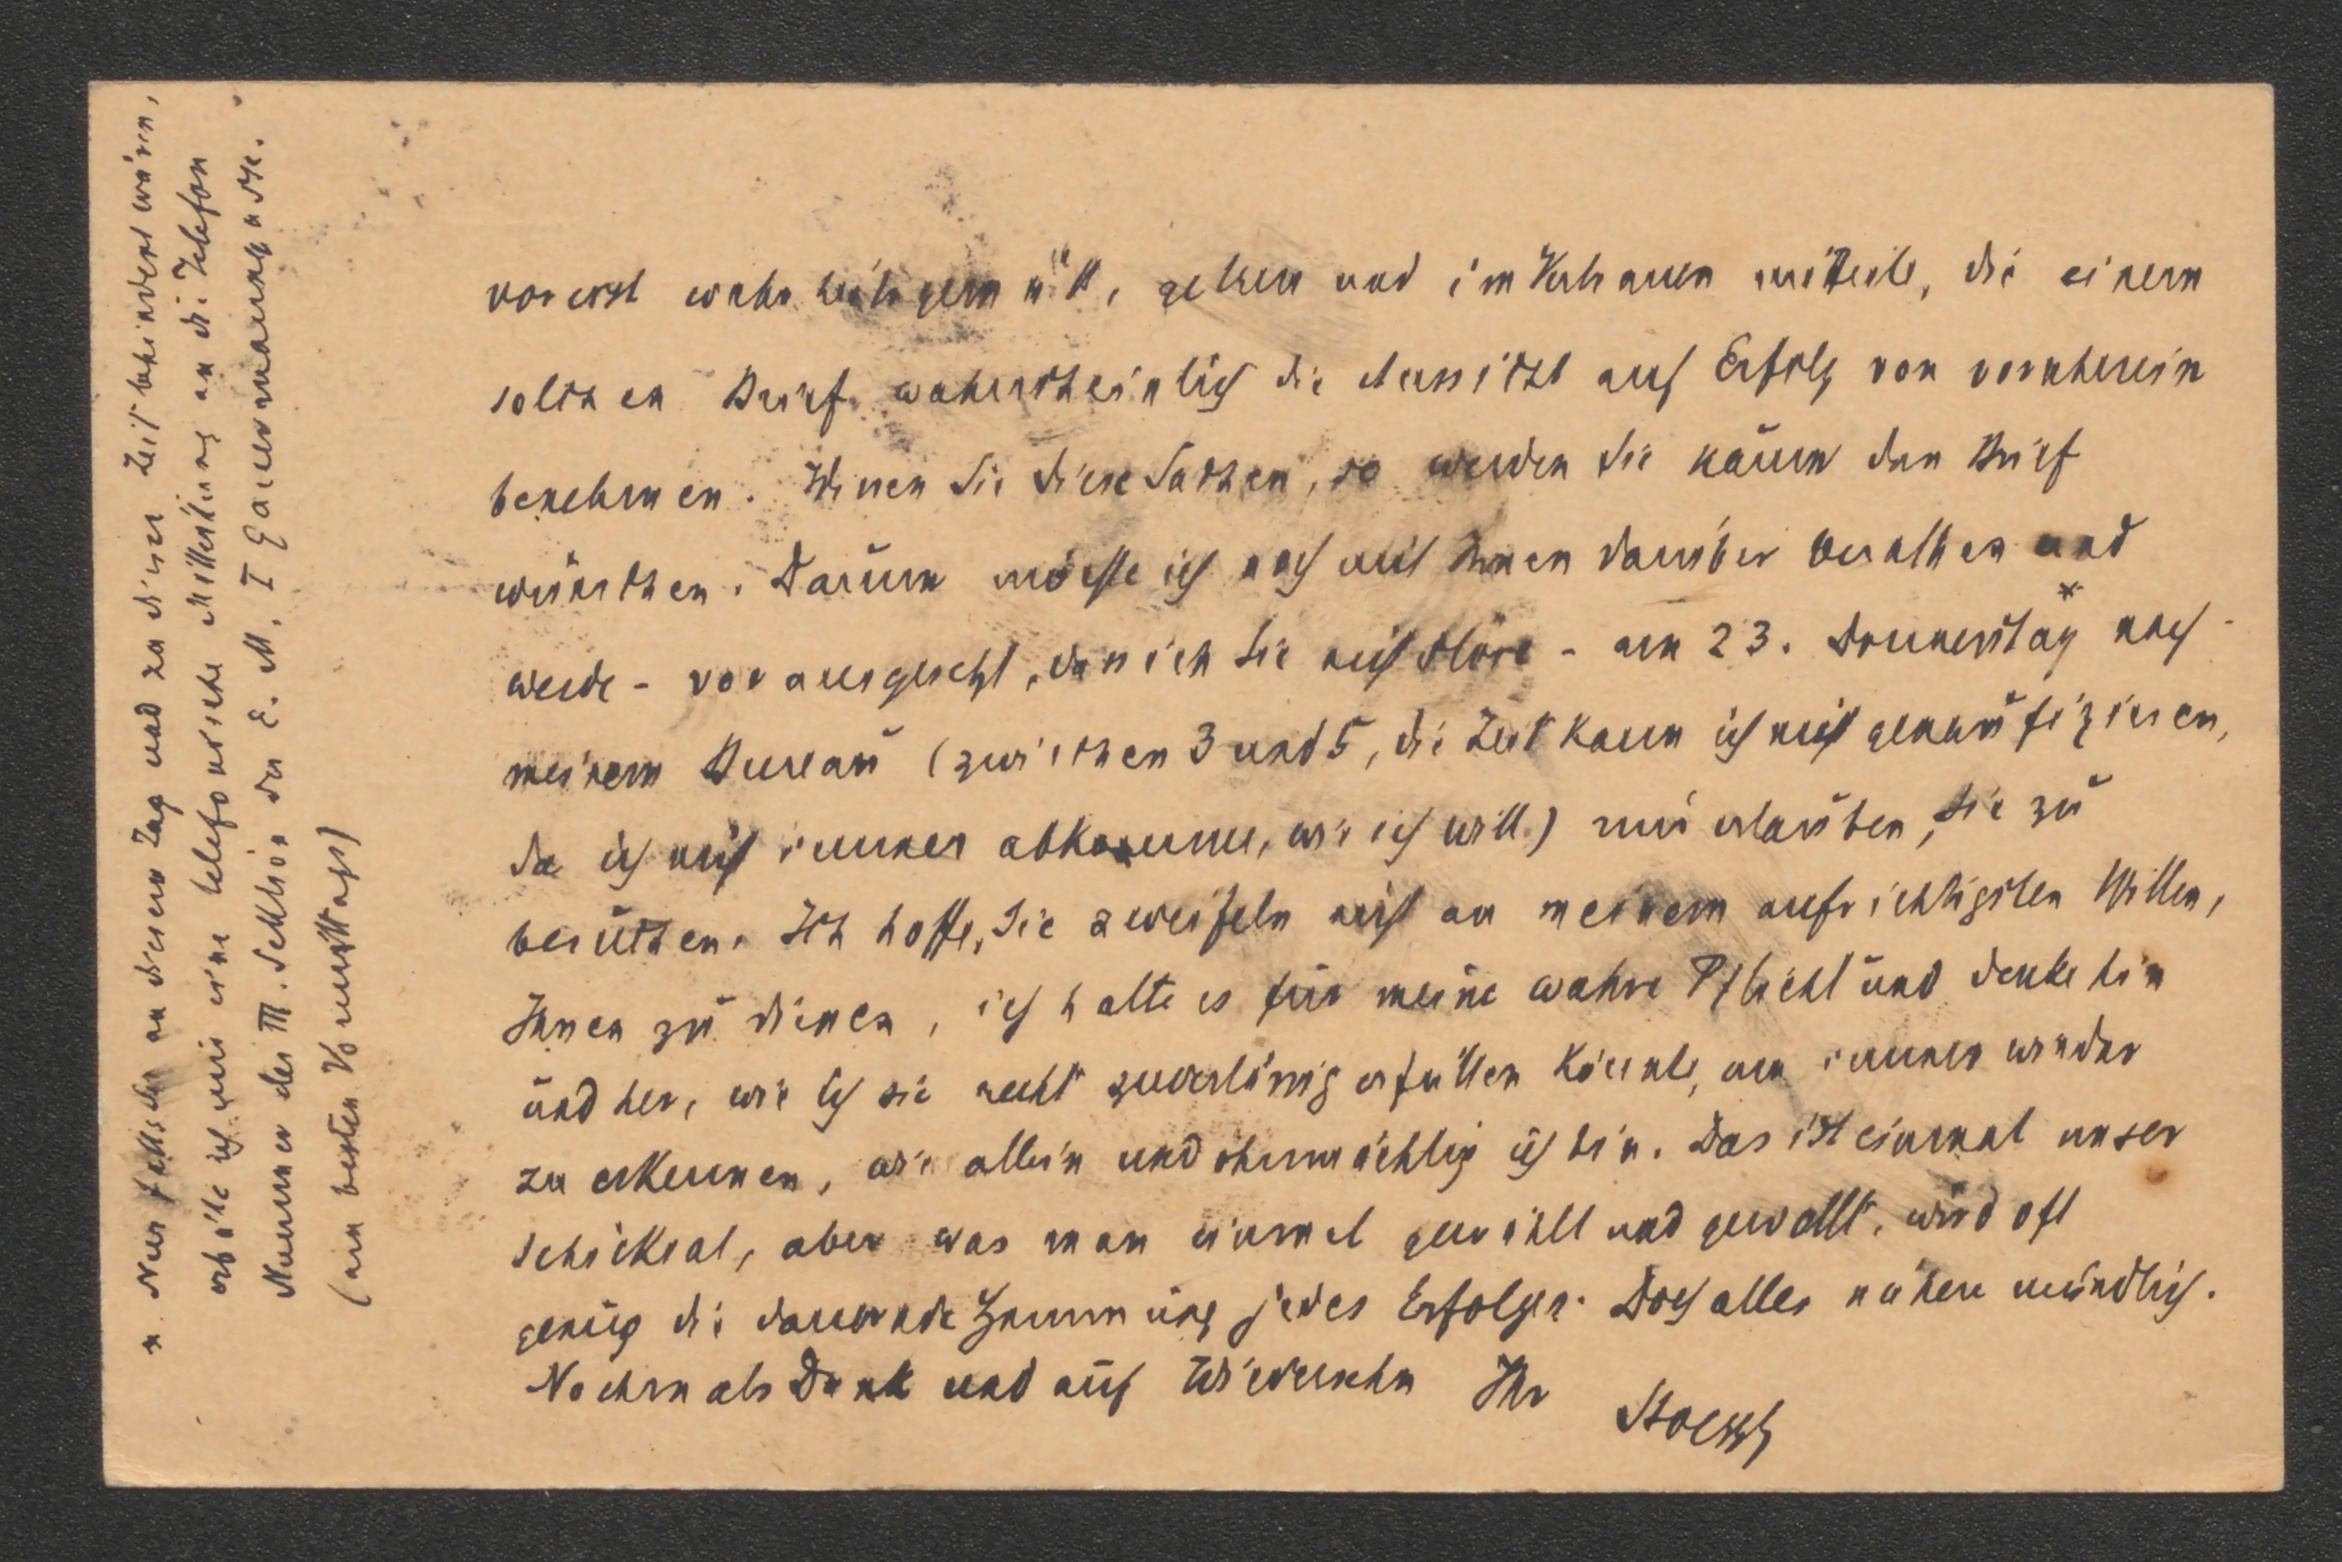 vorerst wahrheitsgemäß, getreu und im Vertrauen mitteile, die einem
solchen Brief wahrscheinlich die Aussicht auf Erfolg von vornherein
benehmen. Wissen Sie diese Sachen, so werden Sie kaum den Brief
wünschen. Darum möchte ich noch mit Ihnen darüber berathen und
werde - vorausgesetzt, dass ich Sie nicht störe - am 23. Donnerstag * nach
meinem Bureau (zwischen 3 und 5, die Zeit kann ich nicht genau fixieren,
da ich nicht immer abkomme, wie ich will) mir erlauben, Sie zu
besuchen. Ich hoffe, Sie zweifeln nicht an meinem aufrichtigsten Willen,
Ihnen zu dienen, ich halte es für meine wahre Pflicht und denke hin
und her, wie ich sie recht zuverlässig erfüllen könnte, um immer wieder
zu erkennen, wie allein und ohnmächtig ich bin. Das ist einmal unser
Schicksal, aber was man einmal gewählt und gewollt, wird oft
genug die dauernde Hemmung jedes Erfolges. Doch alles nähere mündlich.
Nochmals Dank und auf Wiedersehn Ihr Stoessl
* Nur falls Sie an diesem Tag und zu dieser Zeit behindert wären,
erbitte ich mir eine telefonische Mitteilung an die Telefon
Nummer der III. Sektion des E. M. I Gauermanngasse.
(am besten Vormittags)